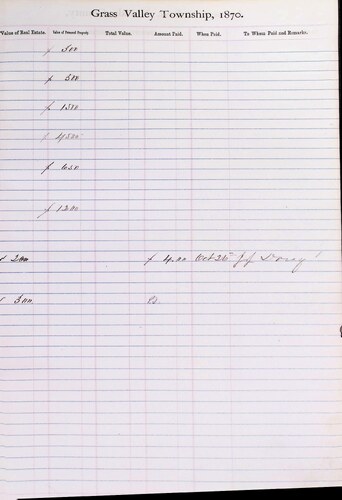 Grass Valley Township, 1870.
Value of Real Estate. Value of Personal Property Total Value. Amount Paid. When Paid. To Whom Paid and Remarks.
500
500
1500
4500
650
1200
200 4.00 Oct 26
300